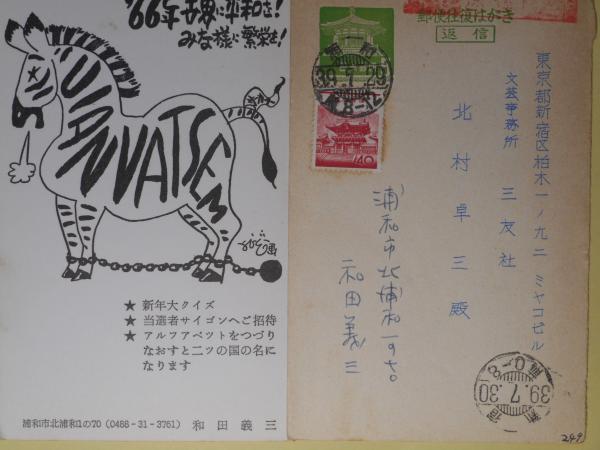 '66年 世界に平和を!
みな様に繁栄を!
UIANVATSEM
★ 新年大クイズ
★ 当選者サイゴンへご招待
★ アルファベットをつづり
なおすと二ツの国の名に
なります
浦和市北浦和1の70 (0488-31-3761) 和田義三
郵便往復はがき
返信
39.7.29
前8-12
40
東京都新宿区柏木一ノ九二 ミヤコビル
文芸事務所 三友社
北村卓三殿
浦和市北浦和一ノ七〇
和田義三
39.7.30
249